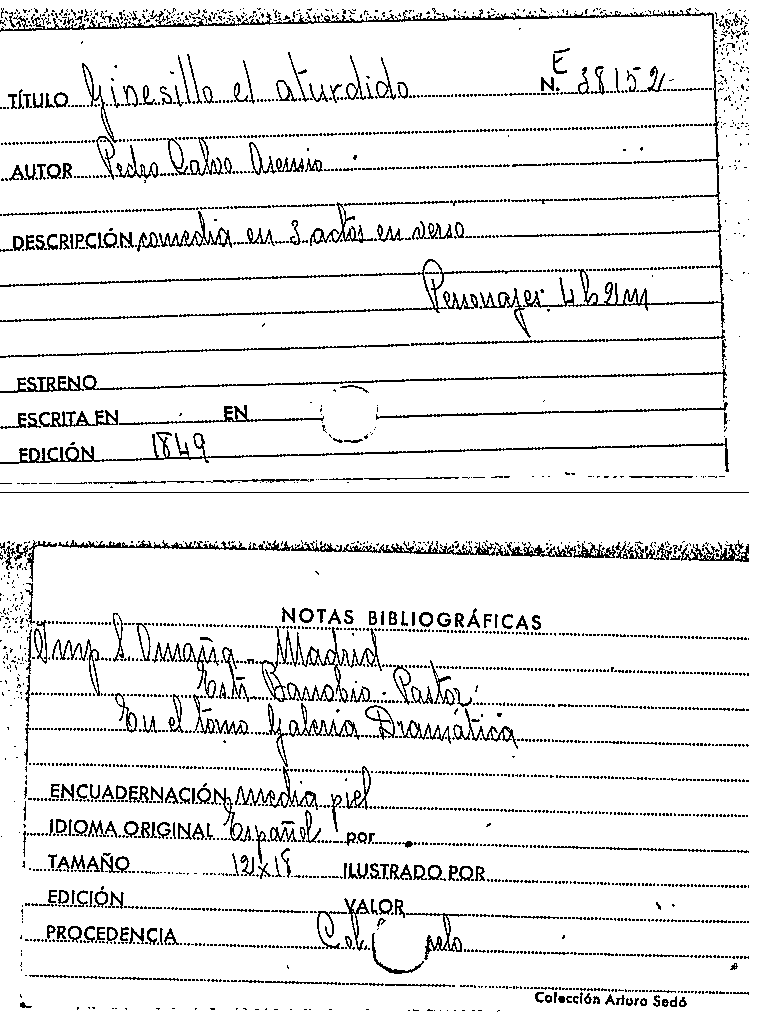 TÍTULO Ginesillo el aturdido N.E 38152
AUTOR Pedro Calvo Asensio.
DESCRIPCIÓN comedia en 3 actos en verso
Personajes: 4h 2m
ESTRENO
ESCRITA EN EN
EDICIÓN 1849
NOTAS BIBLIOGRÁFICAS
Imp S Omaña - Madrid
Pastor
En el tomo Galeria Dramática
ENCUADERNACIÓN media piel
IDIOMA ORIGINAL Español por
TAMAÑO 12x18 ILUSTRADO POR
EDICIÓN VALOR
PROCEDENCIA
Colección Arturo Sedó